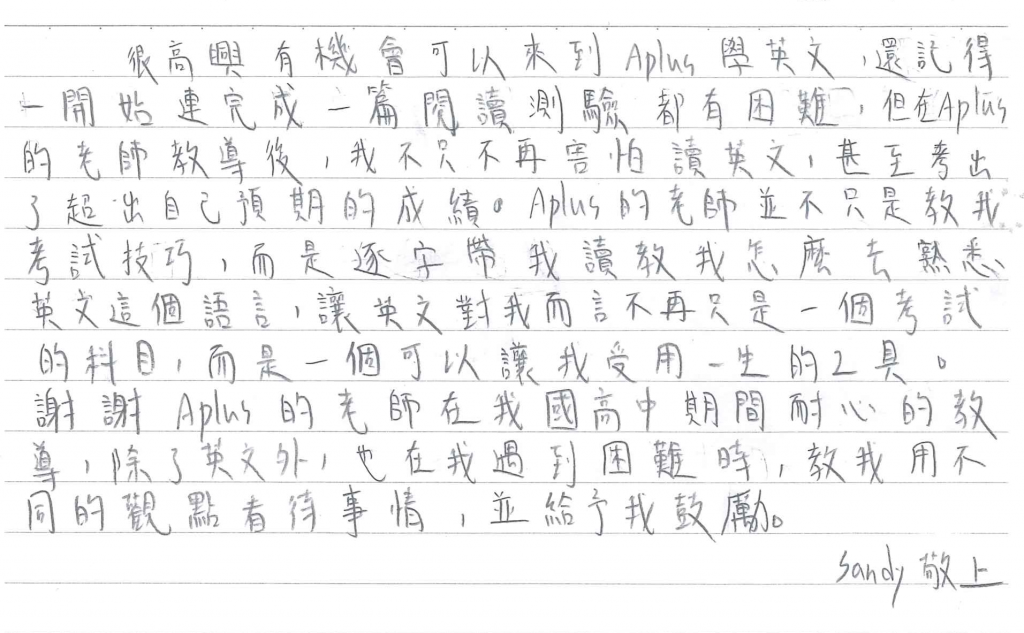 很高興有機會可以來到Aplus學英文，還記得
一開始連完成一篇閱讀測驗都有困難，但在Aplus
的老師教導後，我不只不再害怕讀英文，甚至考出
了超出自己預期的成績。Aplus的老師並不只是教我
考試技巧，而是逐字帶我讀教我怎麼去熟悉
英文這個語言，讓英文對我而言不再只是一個考試
的科目，而是一個可以讓我受用一生的工具。
謝謝Aplus的老師在我國高中期間耐心的教
導，除了英文外，也在我遇到困難時，教我用不
同的觀點看待事情，並給予我鼓勵。
Sandy 敬上